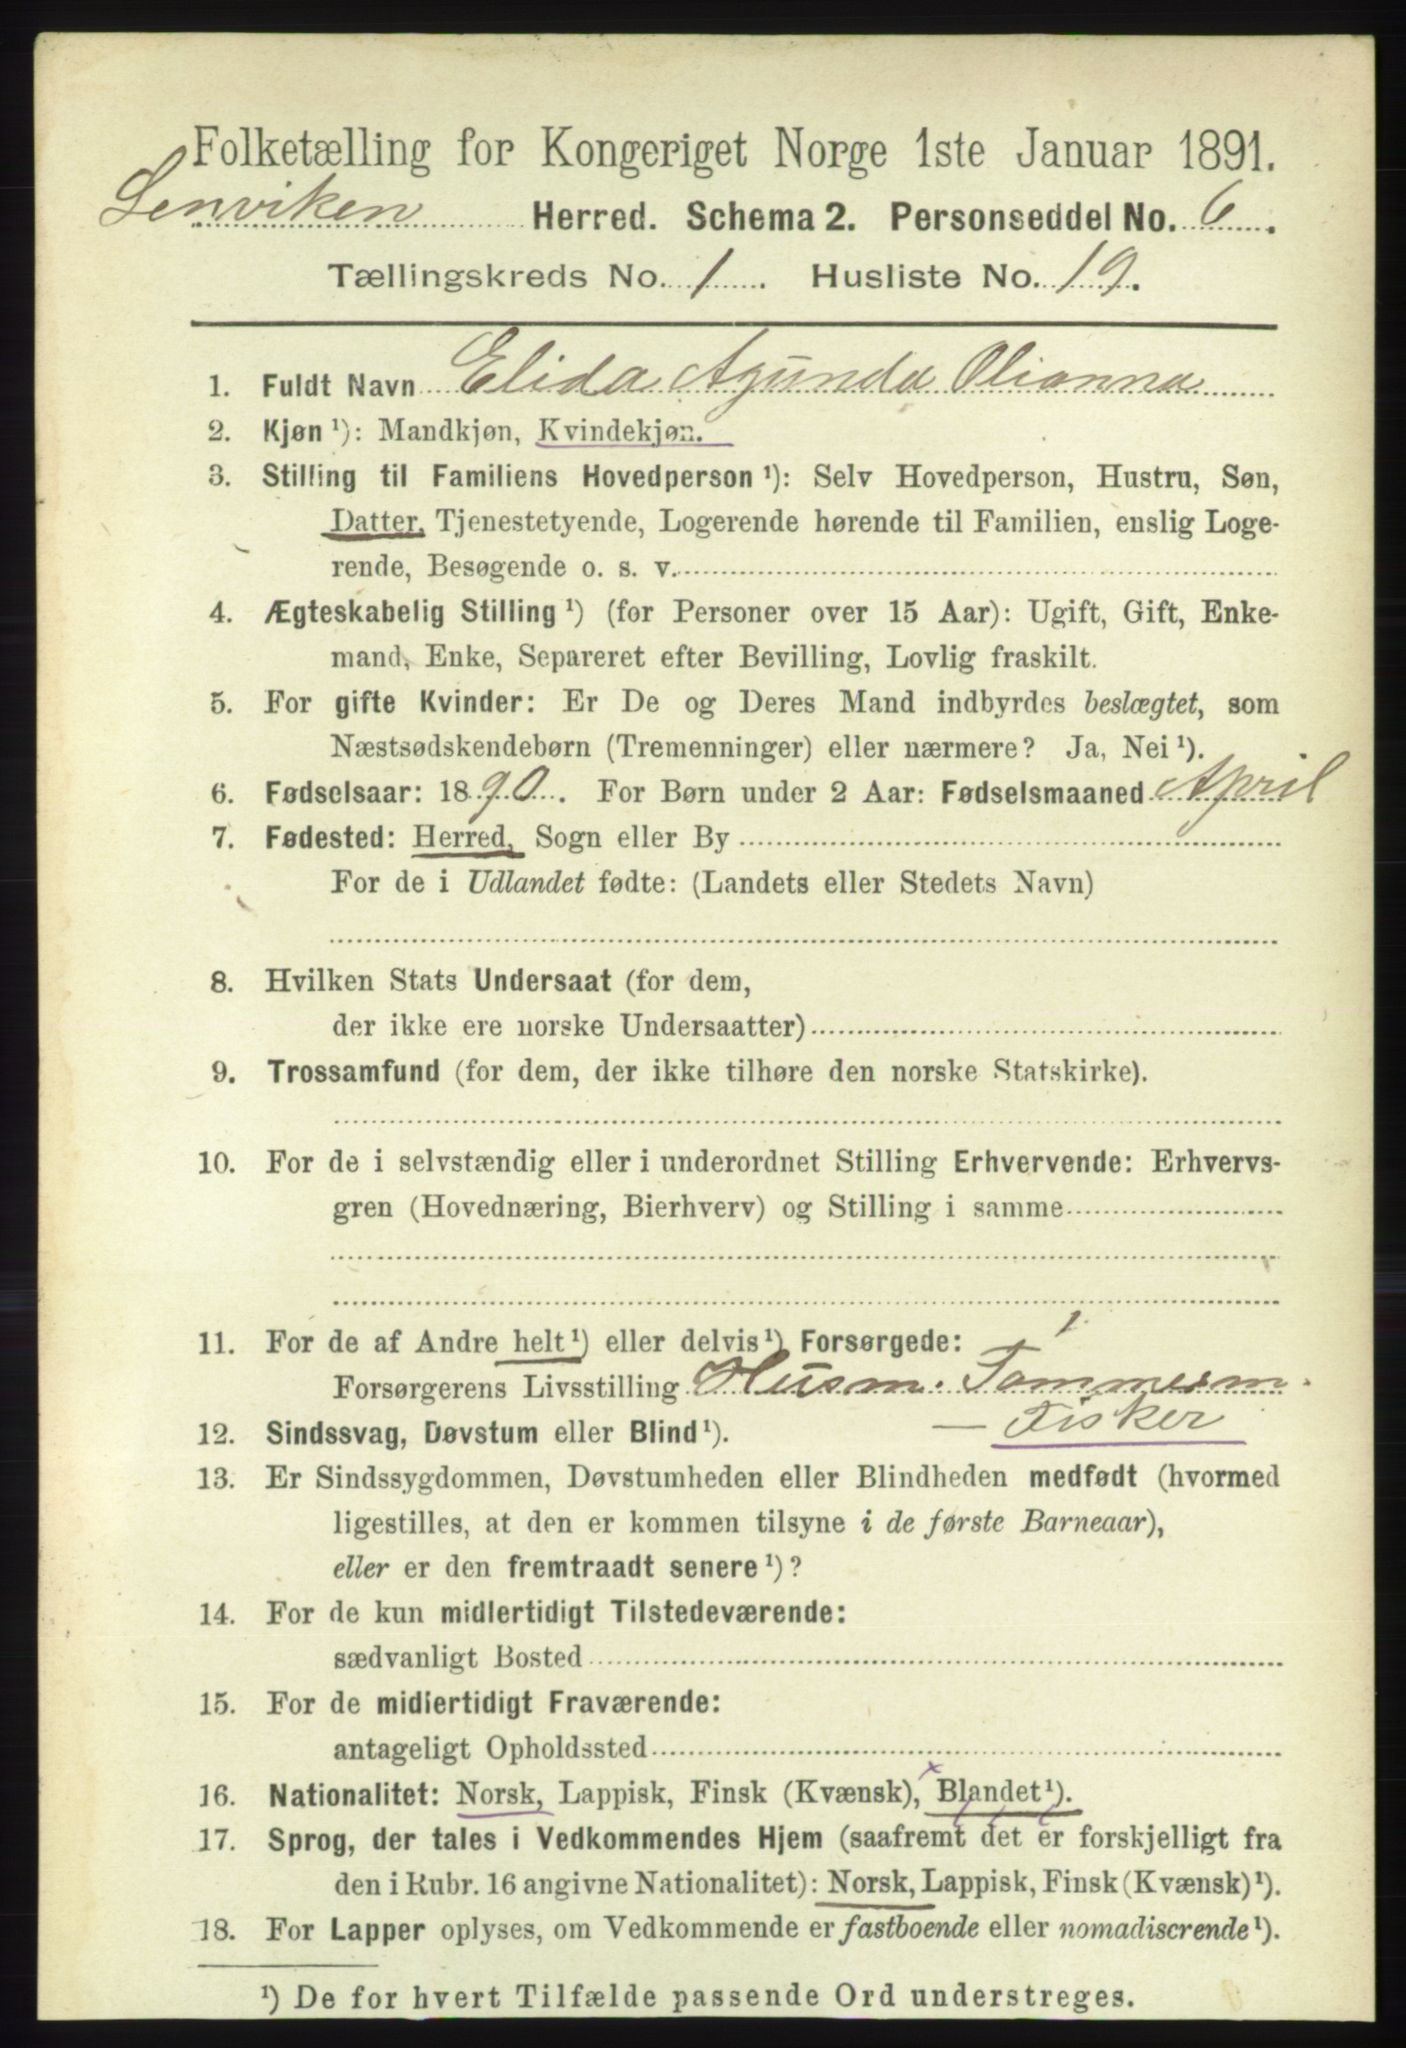 Folketælling for Kongeriget Norge 1ste Januar 1891.
Lenviken Herred. Schema 2. Personseddel No. 6.
Tællingskreds No. 1. Husliste No. 19.
1. Fuldt Navn Elida Agunda Olianna
2. Kjøn ¹): Mandkjøn, Kvindekjøn.
3. Stilling til Familiens Hovedperson ¹): Selv Hovedperson, Hustru, Søn,
Datter, Tjenestetyende, Logerende hørende til Familien, enslig Loge-
rende, Besøgende o. s. v.
4. Ægteskabelig Stilling ¹) (for Personer over 15 Aar): Ugift, Gift, Enke-
mand, Enke, Separeret efter Bevilling, Lovlig fraskilt.
5. For gifte Kvinder: Er De og Deres Mand indbyrdes beslægtet, som
Næstsødskendebørn (Tremenninger) eller nærmere? Ja, Nei ¹).
6. Fødselsaar: 1890. For Børn under 2 Aar: Fødselsmaaned April
7. Fødested: Herred, Sogn eller By
For de i Udlandet fødte: (Landets eller Stedets Navn)
8. Hvilken Stats Undersaat (for dem,
der ikke ere norske Undersaatter)
9. Trossamfund (for dem, der ikke tilhøre den norske Statskirke).
10. For de i selvstændig eller i underordnet Stilling Erhvervende: Erhvervs-
gren (Hovednæring, Bierhverv) og Stilling i samme
11. For de af Andre helt ¹) eller delvis ¹) Forsørgede: 1.
Forsørgerens Livsstilling Husm. Tømmerm.
12. Sindssvag, Døvstum eller Blind ¹). — Fisker
13. Er Sindssygdommen, Døvstumheden eller Blindheden medfødt (hvormed
ligestilles, at den er kommen tilsyne i de første Barneaar),
eller er den fremtraadt senere ¹)?
14. For de kun midlertidigt Tilstedeværende:
sædvanligt Bosted
15. For de midlertidigt Fraværende:
antageligt Opholdssted
16. Nationalitet: Norsk, Lappisk, Finsk (Kvænsk), × Blandet ¹).
17. Sprog, der tales i Vedkommendes Hjem (saafremt det er forskjelligt fra
den i Rubr. 16 angivne Nationalitet): Norsk, Lappisk, Finsk (Kvænsk) ¹).
18. For Lapper oplyses, om Vedkommende er fastboende eller nomadiserende ¹).
¹) De for hvert Tilfælde passende Ord understreges.